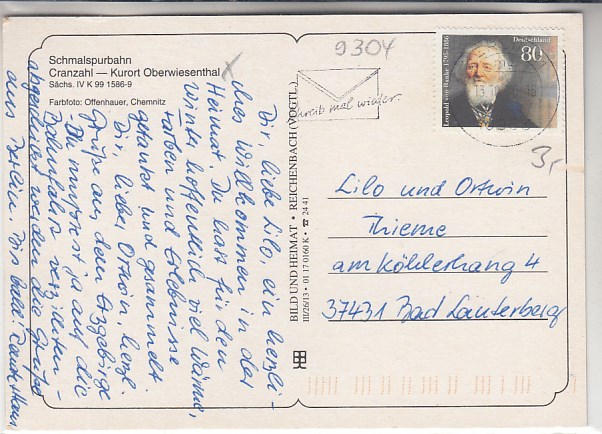 Schmalspurbahn
Cranzahl — Kurort Oberwiesenthal
Sächs. IV K 99 1586-9
Farbfoto: Offenhauer, Chemnitz
9304
Schreib mal wieder.
Deutschland
80
Leopold von Ranke 1795-1886
3,-
BILD UND HEIMAT • REICHENBACH (VOGTL.)
III/26/13 • 01 17 0160 K • ☎ 24 41
Dir, liebe Lilo, ein herzli-
ches Willkommen in der
Heimat. Du hast für den
Winter hoffentlich viel Wärme,
Farben und Erlebnisse
getankt und gesammelt.
Dir, lieber Ortwin, herzl.
Grüße aus dem Erzgebirge
Du mußtest ja auf die
Bahnfahrt verzichten –
abgerundet werden die Grüße
aus Berlin. Bis bald
Lilo und Ortwin
Thieme
am Köhlerhang 4
37431 Bad Lauterberg